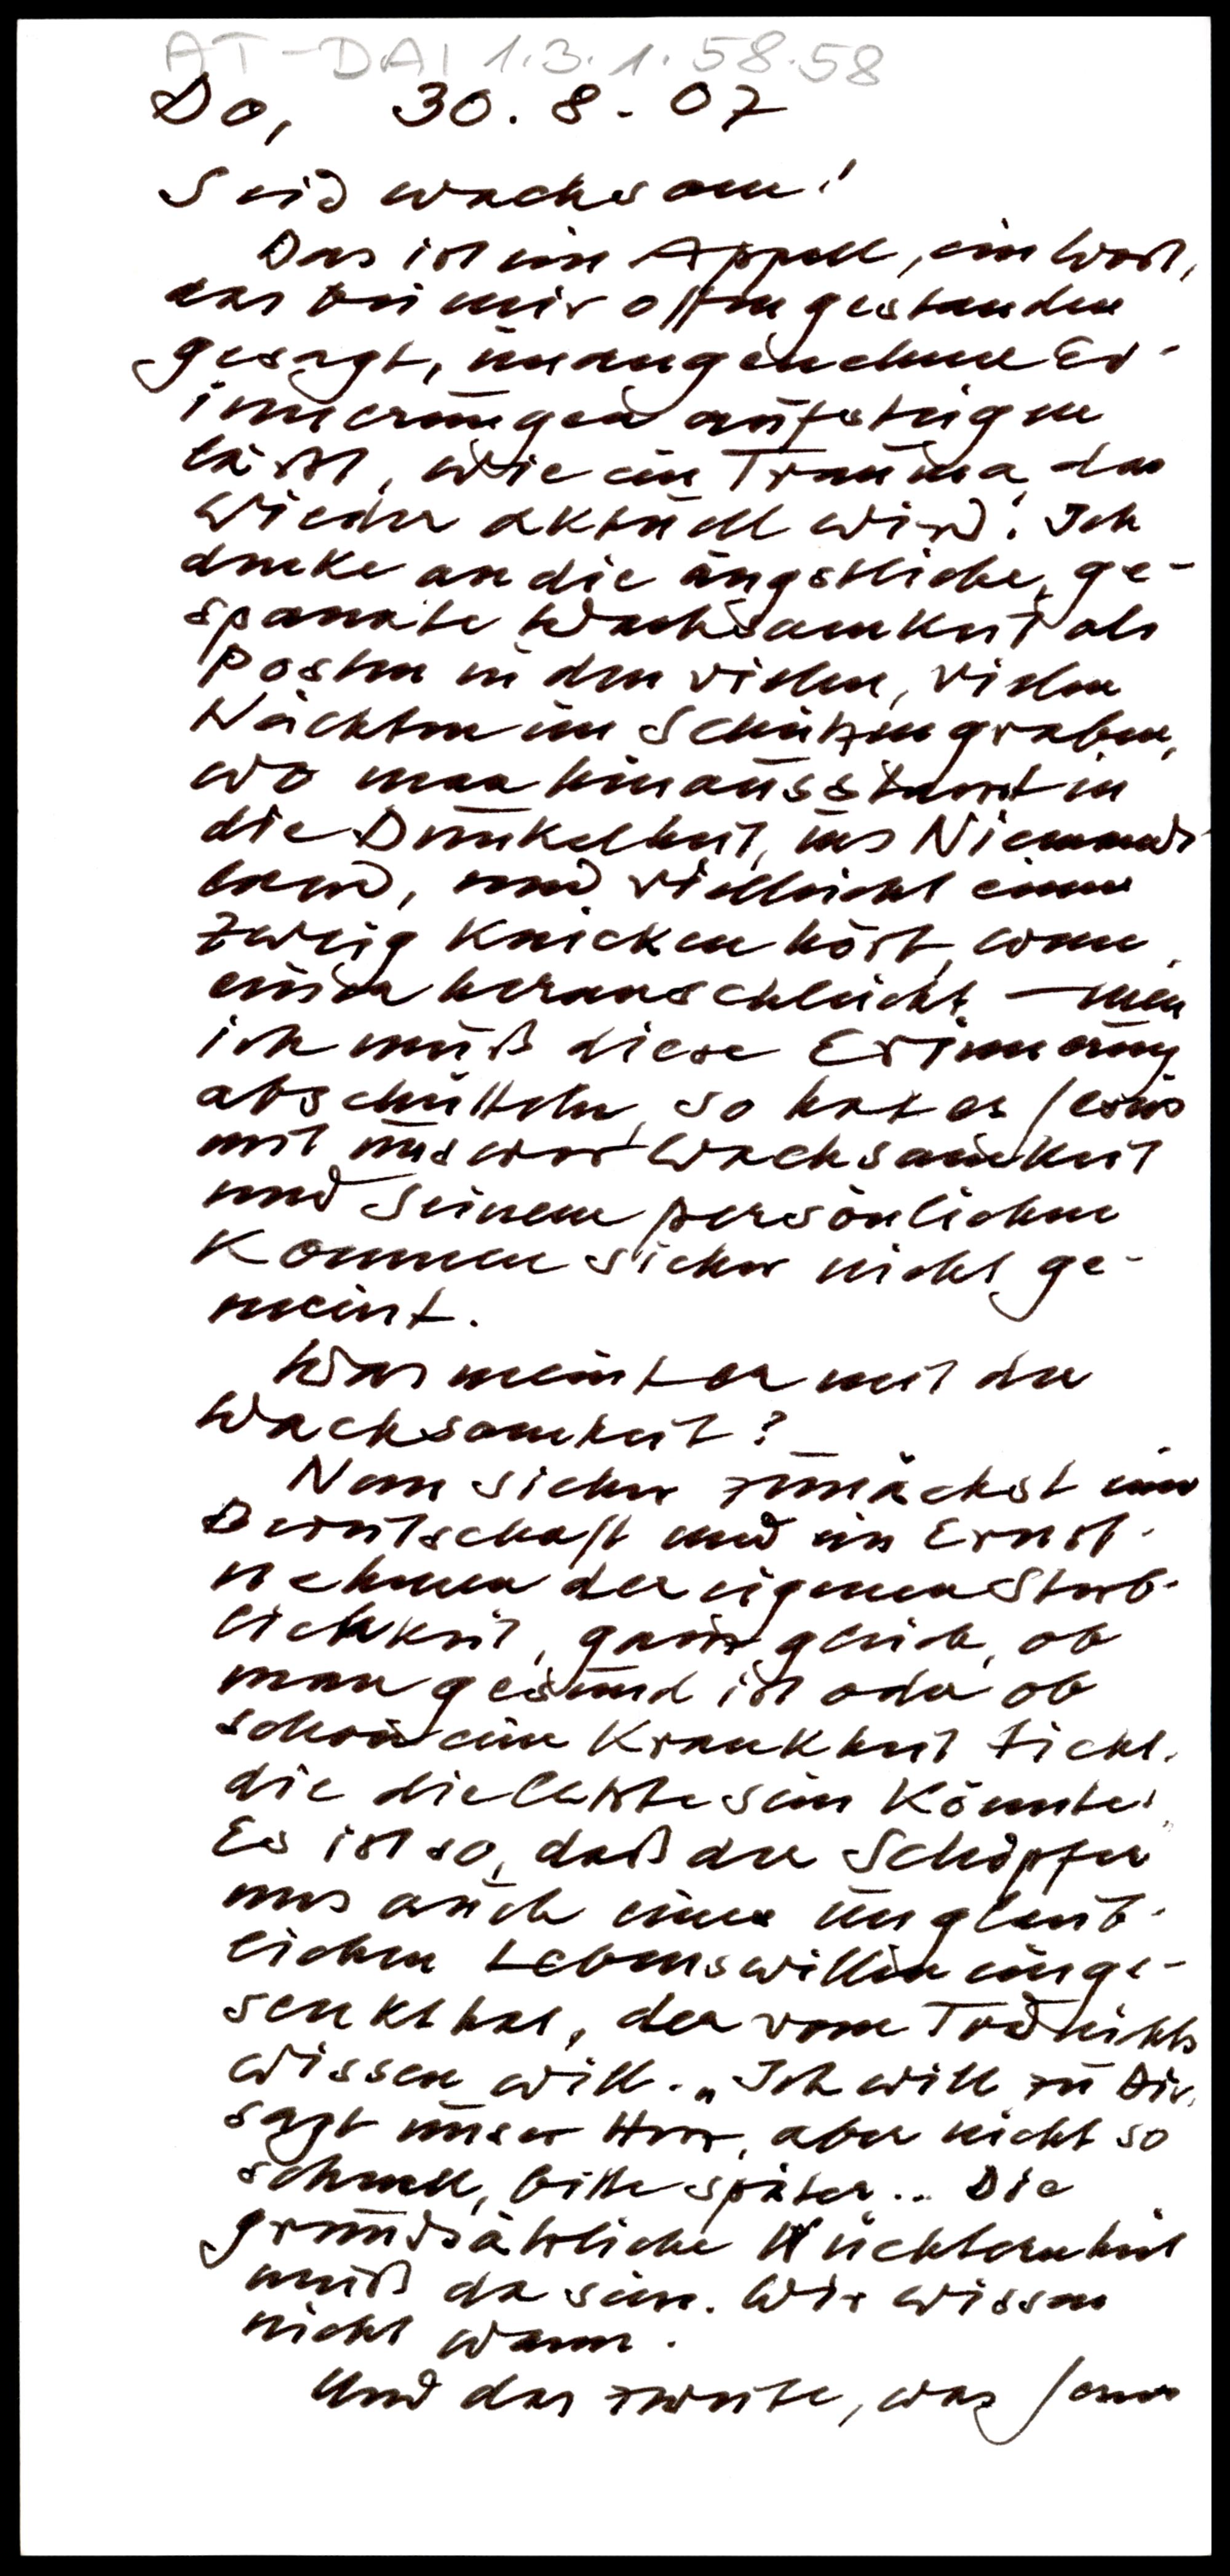 AT-DAI 1.3.1.58.58
Do, 30.8.07
Seid wachsam!
Das ist ein Appell, ein Wort,
das bei mir offengestanden
gesagt, unangenehme Er-
innerungen aufsteigen
läßt, wie ein Trauma, das
wieder aktuell wird. Ich
denke an die ängstliche, ge-
spannte Wachsamkeit als
Posten in den vielen, vielen
Nächten im Schützengraben,
wo man hinausstarrt in
die Dunkelheit, ins Niemands-
land, und vielleicht einen
Zweig knicken hört, wenn
einer heranschleicht –
ich muß diese Erinnerung
abschütteln, so hat es Jesus
mit unserer Wachsamkeit
und seinem persönlichen
Kommen sicher nicht ge-
meint.
Was meint er mit der
Wachsamkeit?
Nun sicher zunächst eine
Bereitschaft und ein Ernst-
nehmen der eigenen Sterb-
lichkeit, ganz gleich, ob
man gesund ist oder ob
schon eine Krankheit tickt,
die die letzte sein könnte.
Es ist so, daß der Schöpfer
uns auch einen unglaub-
lichen Lebenswillen einge-
senkt hat, der vom Tod nichts
wissen will. „Ich will zu Dir,
sagt unser Herz, aber nicht so
schnell, bitte später.. Die
grundsätzliche Nüchternheit
muß da sein. Wir wissen
nicht wann.
Und das zweite, was Jesus